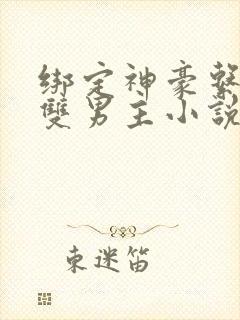 綁定神豪繫
雙男主小說
東迷笛